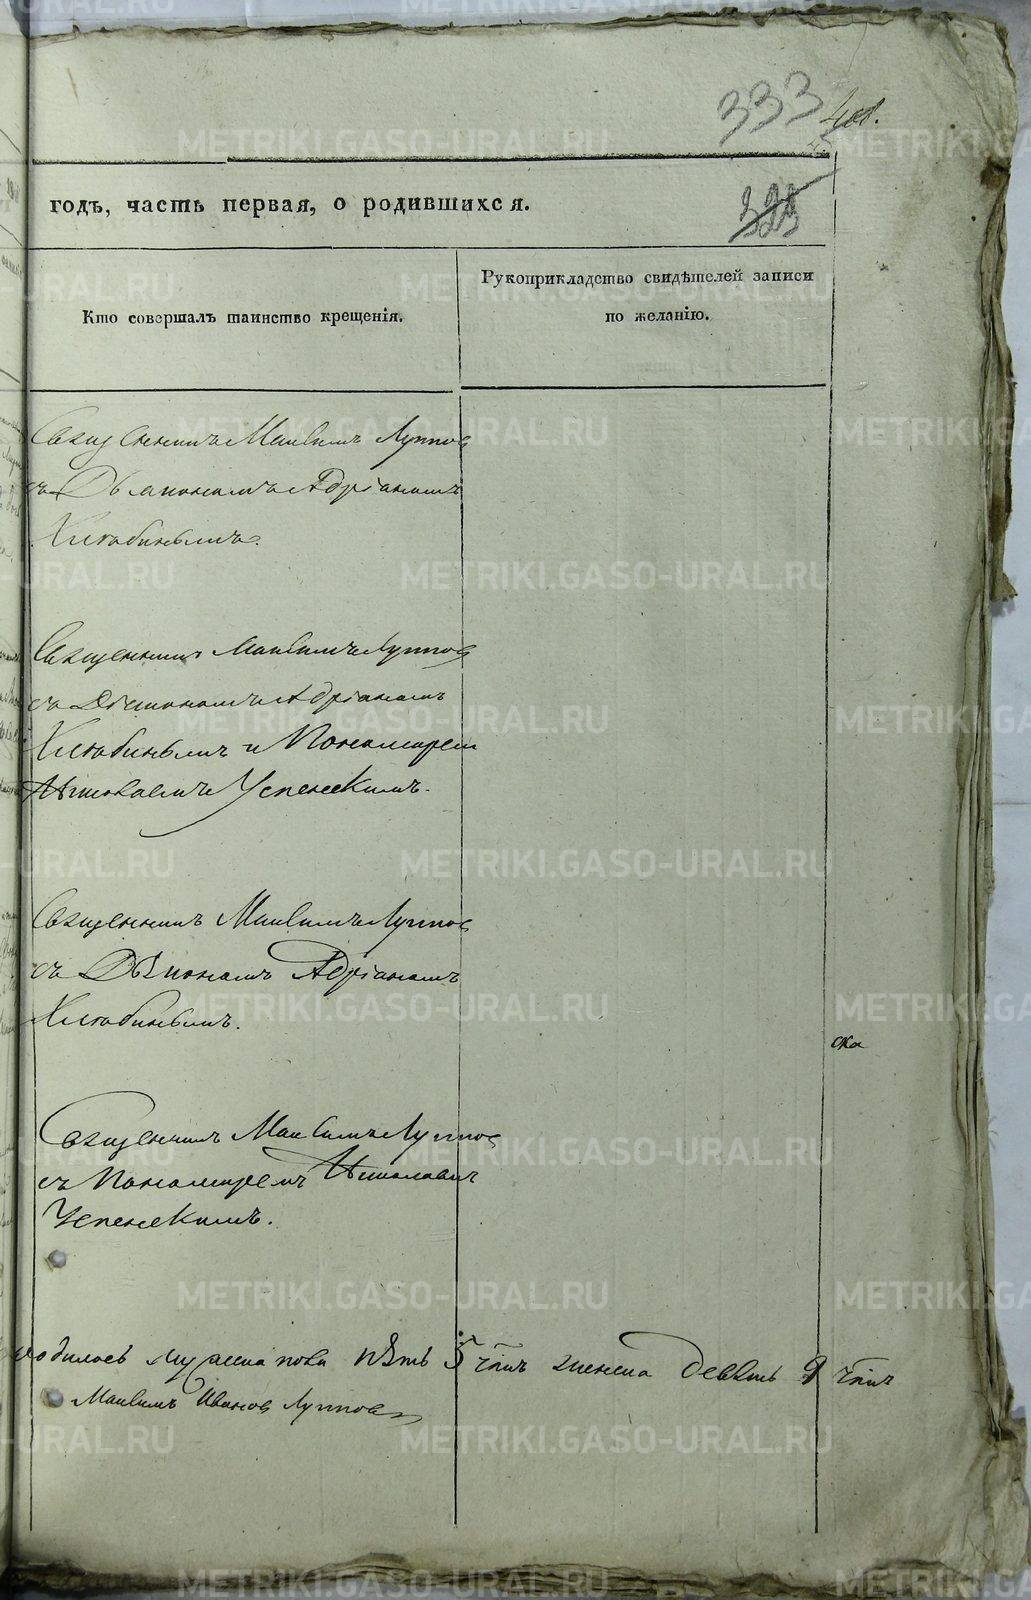 333 401.
годъ, часть первая, о родившихся.
323
Кто совершалъ таинство крещенія.
Рукоприкладство свидѣтелей записи
по желанію.
Священникъ Максимъ Луппов
съ Дьякономъ Адріаномъ
Хлѣбинымъ.
Священникъ Максимъ Луппов
съ Діякономъ Адріаномъ
Хлѣбинымъ и Пономарем
Успенскимъ.
Священникъ Максимъ Луппов
съ Дьякономъ Адріаномъ
Хлѣбинымъ.
ска
Священникъ Максимъ Луппов
съ Пономаремъ
Успенскимъ.
родилось мужеска пола пять 5 женска девять 9
Максимъ Иванов Луппов
METRIKI.GASO-URAL.RU